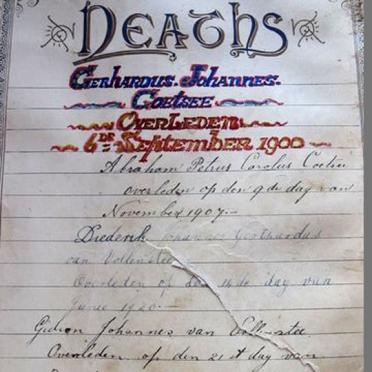 DEATHS
GERHARDUS. JOHANNES.
COETSEE
OVERLEDEN
6DE SEPTEMBER 1900
Abraham Petrus Carolus Coetsee
overleden op den 9de dag van
November 1907
Diederik Johannes Gerhardus
van Vollenstee
Overleden op den 14de dag van
Junie 1920
Gideon Johannes van Vollenstee
Overleden op den 21st dag van